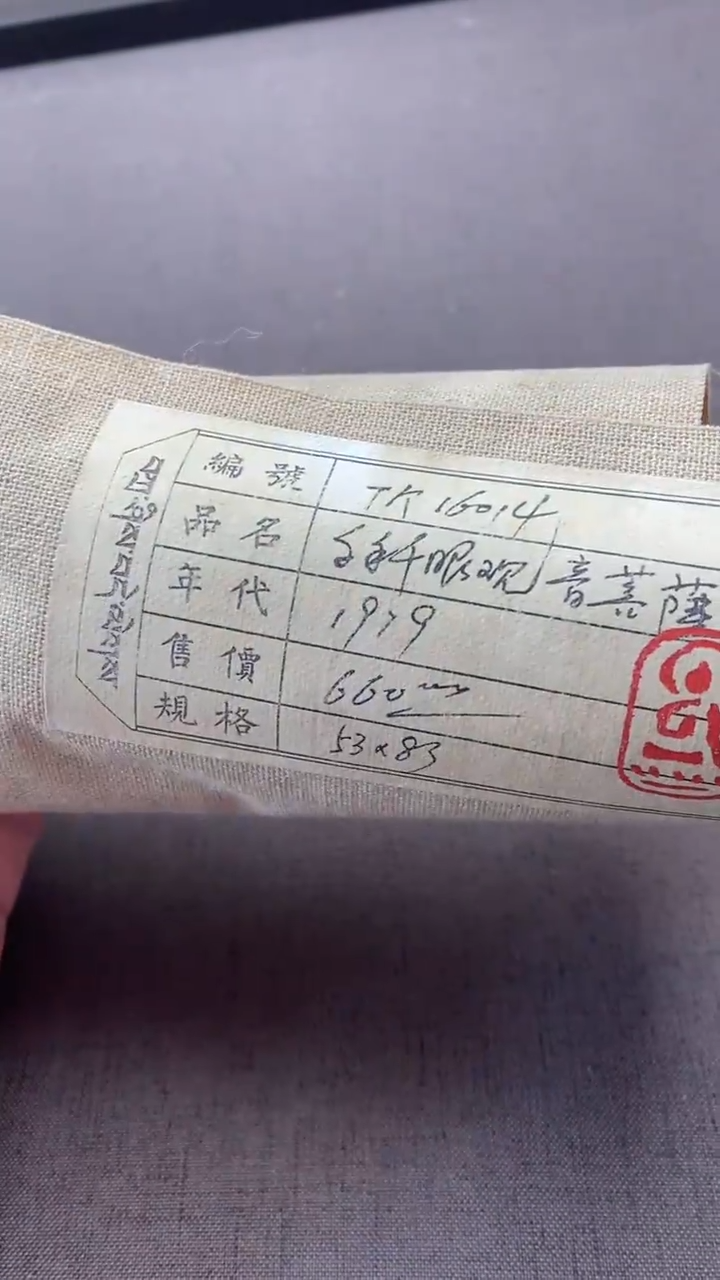 編號 TK16014
品名 千手千眼观音菩薩
年代 1979
售價 660
規格 53x83